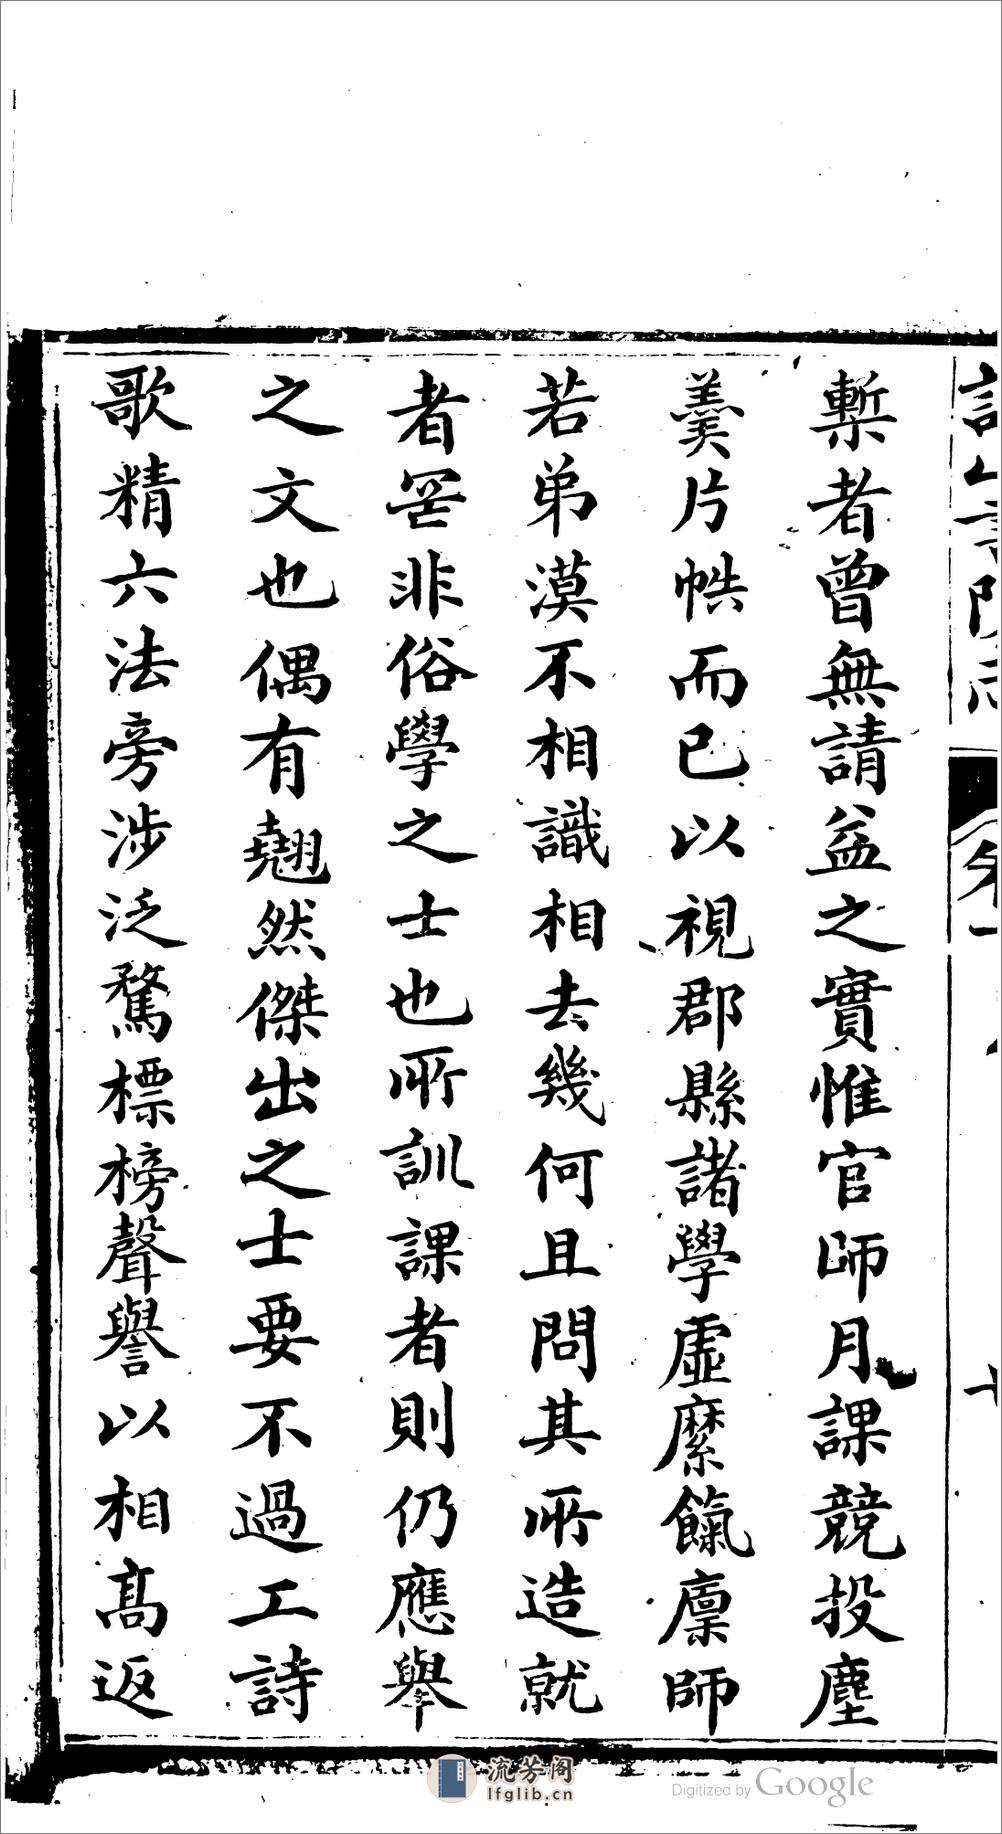 槧者曾無請益之實惟官師月課競投塵
羹片帋而已以視郡縣諸學虛縻餼廩師
若弟漠不相識相去幾何且問其所造就
者罔非俗學之士也所訓課者則仍應舉
之文也偶有翹然傑出之士要不過工詩
歌精六法旁涉泛騖標榜聲譽以相高返
流芳阁
lfglib.cn
Digitized by Google